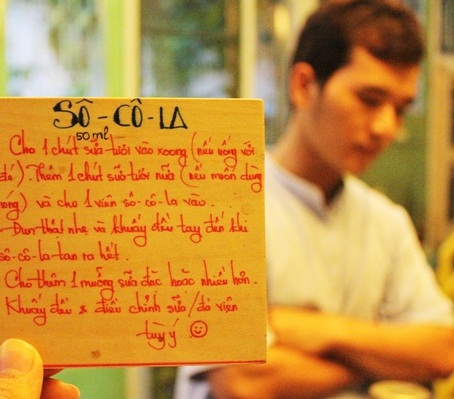 SÔ - CÔ - LA
50 ml
Cho 1 chút sữa tươi vào xoong (nếu uống với
đá). Thêm 1 chút sữa tươi nữa (nếu muốn dùng
nóng) và cho 1 viên sô-cô-la vào.
- Đun thật nhẹ và khuấy đều tay đến khi
sô-cô-la tan ra hết.
Cho thêm 1 muỗng sữa đặc hoặc nhiều hơn.
Khuấy đều & điều chỉnh sữa/đá viên
tùy ý